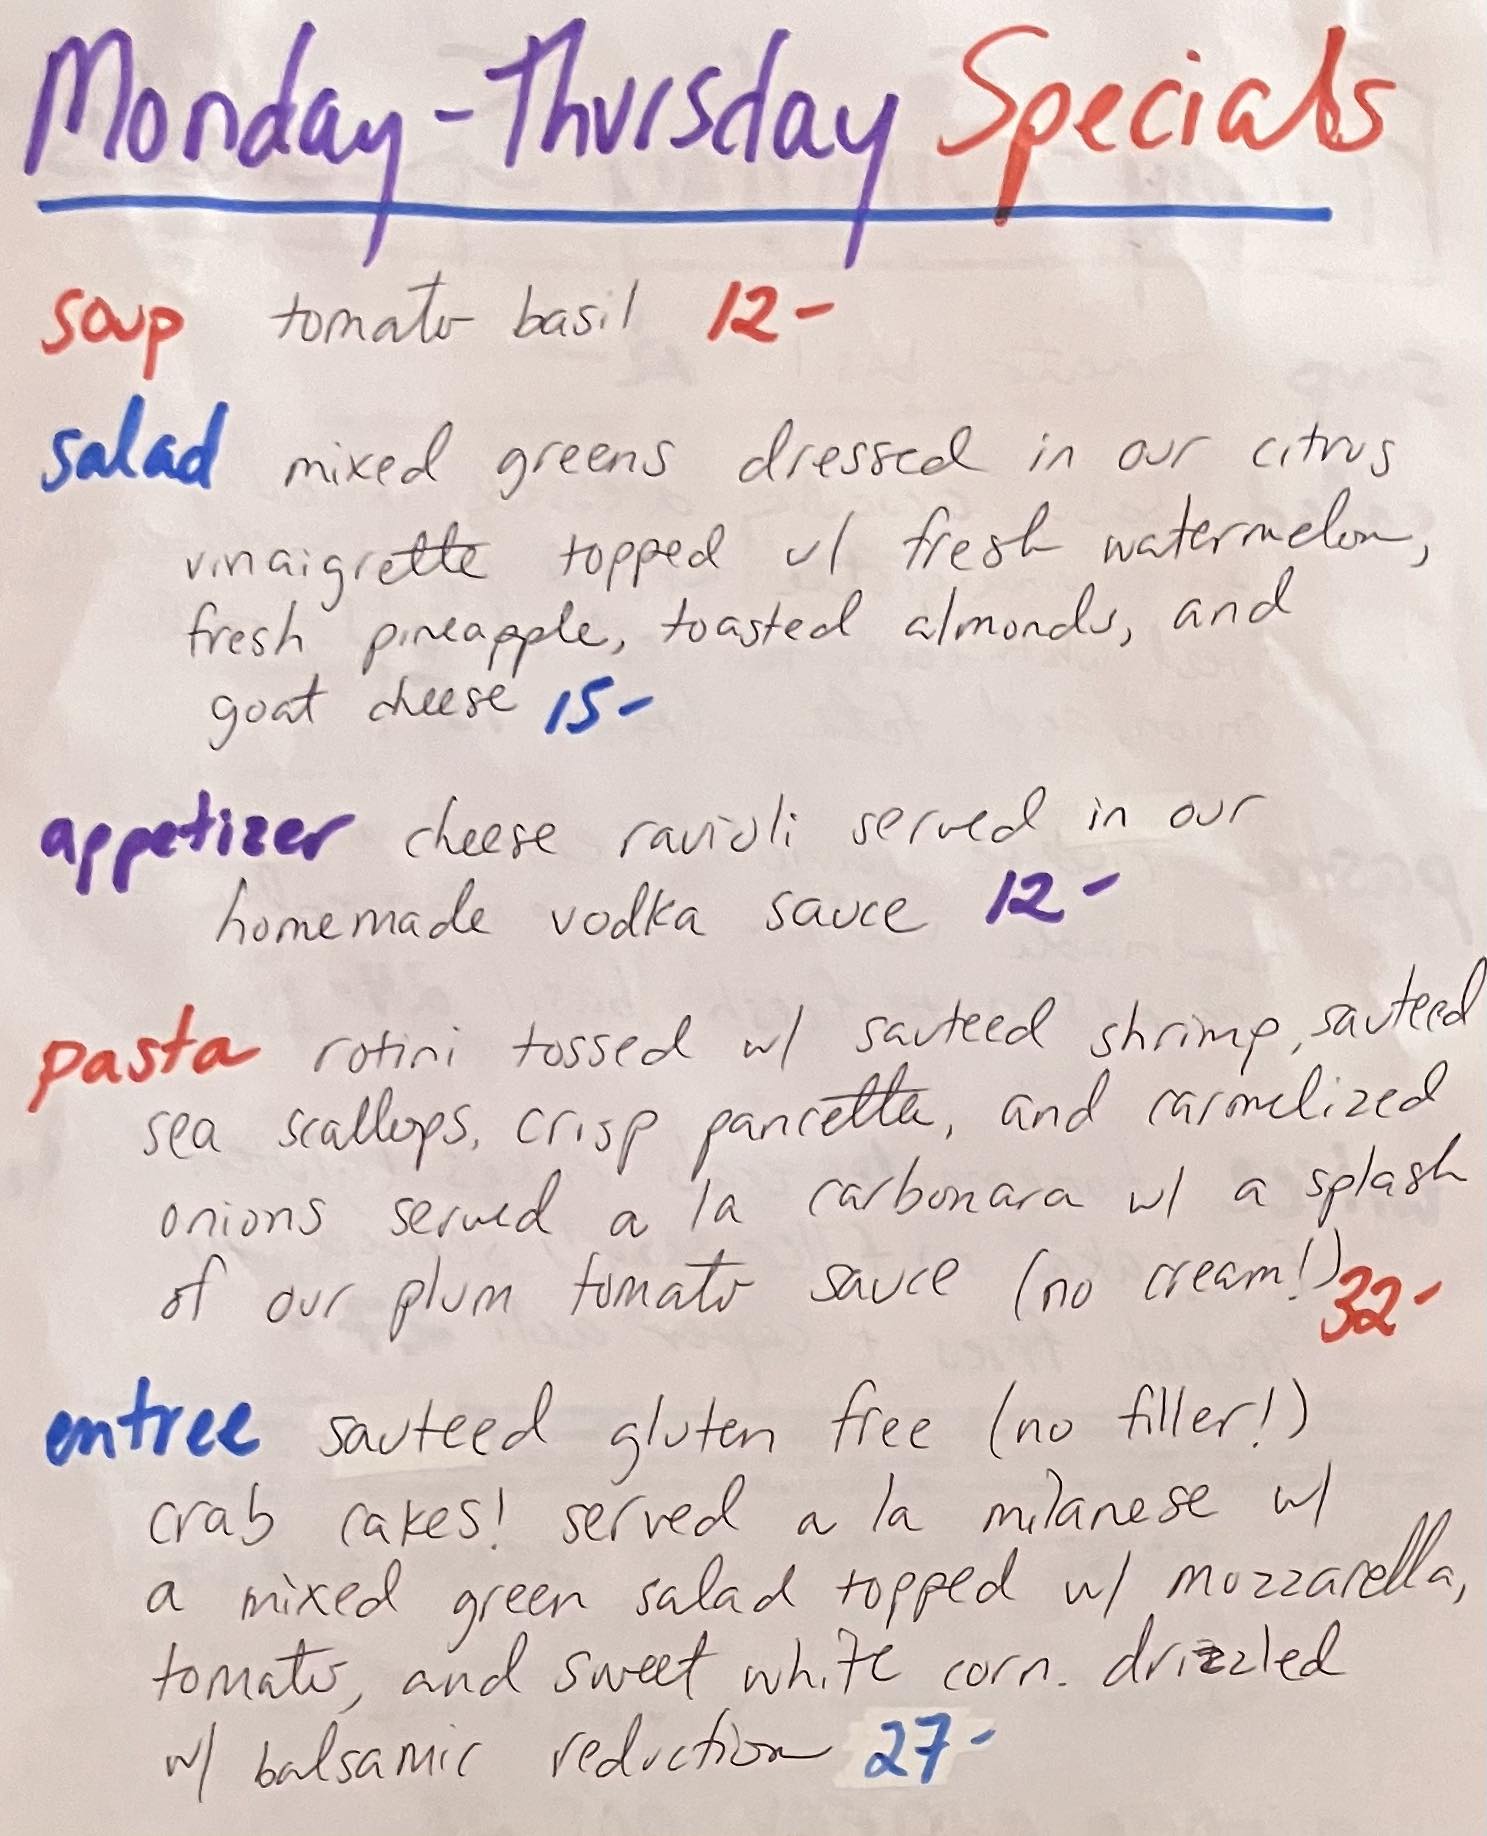 Monday-Thursday Specials
soup tomato basil 12-
salad mixed greens dressed in our citrus
vinaigrette topped w/ fresh watermelon,
fresh pineapple, toasted almonds, and
goat cheese 15-
appetizer cheese ravioli served in our
homemade vodka sauce 12-
pasta rotini tossed w/ sauteed shrimp, sauteed
sea scallops, crisp pancetta, and carmelized
onions served a la carbonara w/ a splash
of our plum tomato sauce (no cream!) 32-
entree sauteed gluten free (no filler!)
crab cakes! served a la milanese w/
a mixed green salad topped w/ mozzarella,
tomato, and sweet white corn. drizzled
w/ balsamic reduction 27-